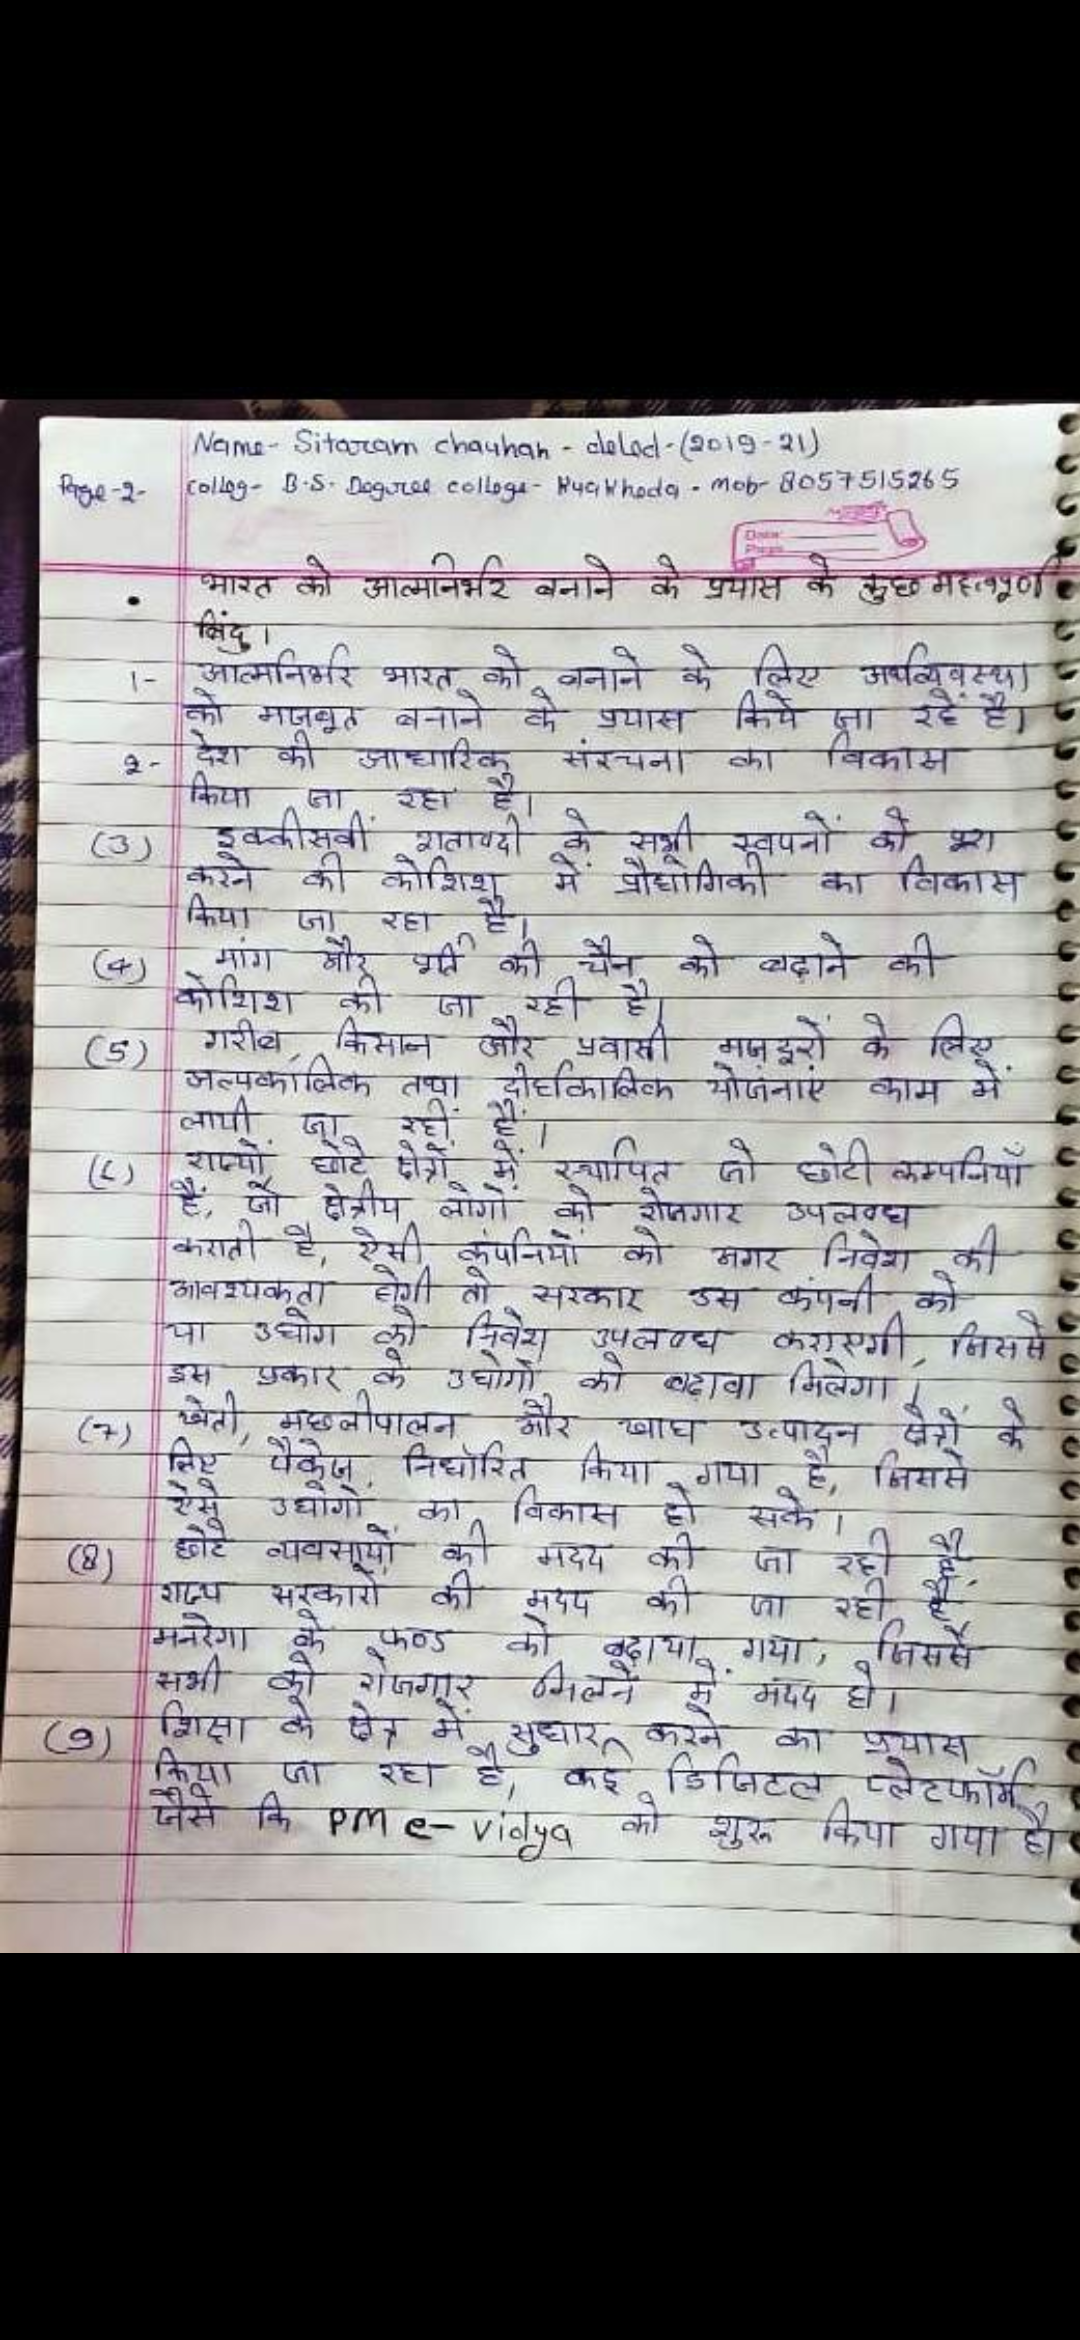 Name- Sitaram chauhan - deled-(2019-21)
Page-2- colleg- B.S. Degree college- Kuakheda - mob- 8057515265
Date
Page
• भारत को आत्मनिर्भर बनाने के प्रयास के कुछ महत्वपूर्ण
बिंदु।
1- आत्मनिर्भर भारत को बनाने के लिए अर्थव्यवस्था
को मजबूत बनाने के प्रयास किये जा रहें है।
2- देश की आधारिक संरचना का विकास
किया जा रहा है।
(3) इक्कीसवीं शताब्दी के सभी स्वपनों को पूरा
करने की कोशिश में प्रौद्योगिकी का विकास
किया जा रहा है।
(4) मांग और पूर्ति की चैन को बढ़ाने की
कोशिश की जा रही है।
(5) गरीब, किसान और प्रवासी मजदूरों के लिए
अल्पकालिक तथा दीर्घकालिक योजनाएं काम में
लायी जा रहीं हैं।
(6) राज्यों, छोटे क्षेत्रों में स्थापित जो छोटी कम्पनियाँ
हैं, जो क्षेत्रीय लोगों को रोजगार उपलब्ध
कराती है, ऐसी कंपनियों को अगर निवेश की
आवश्यकता होगी तो सरकार उस कंपनी को
या उद्योग को निवेश उपलब्ध कराएगी, जिससे
इस प्रकार के उद्योगों को बढ़ावा मिलेगा।
(7) खेती, मछलीपालन और खाद्य उत्पादन क्षेत्रों के
लिए पैकेज निर्धारित किया गया है, जिससे
ऐसे उद्योगों का विकास हो सके।
(8) छोटे व्यवसायों की मदद की जा रही है
राज्य सरकारों की मदद की जा रही है,
मनरेगा के फण्ड को बढ़ाया गया, जिससे
सभी को रोजगार मिलने में मदद हो।
(9) शिक्षा के क्षेत्र में सुधार करने का प्रयास
किया जा रहा है, कई डिजिटल प्लेटफॉर्म
जैसे कि PM e-vidya को शुरू किया गया है।